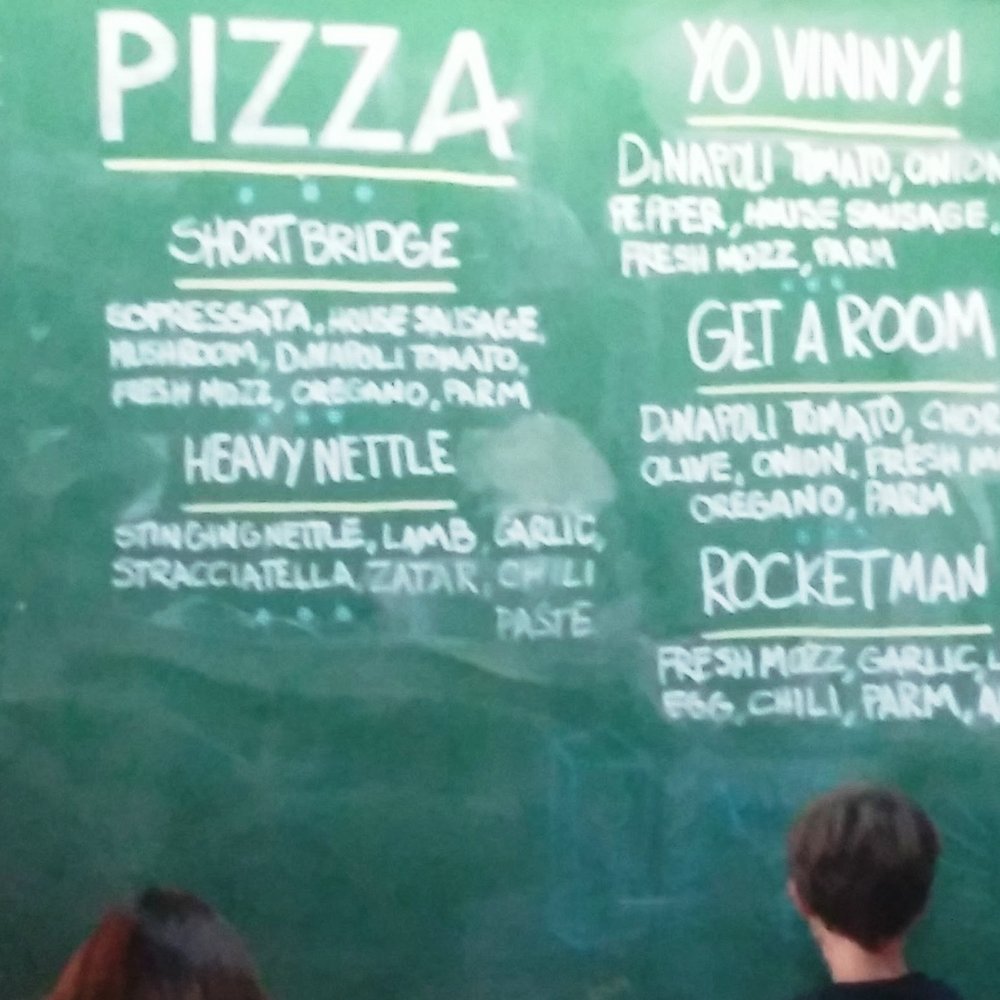 PIZZA
SHORT BRIDGE
SOPRESSATA, HOUSE SAUSAGE,
MUSHROOM, DINAPOLI TOMATO,
FRESH MOZZ, OREGANO, PARM
HEAVY NETTLE
STINGING NETTLE, LAMB, GARLIC,
STRACCIATELLA, ZATAR, CHILI
PASTE
YO VINNY!
DINAPOLI TOMATO, ONION
PEPPER, HOUSE SAUSAGE,
FRESH MOZZ, PARM
GET A ROOM
DINAPOLI TOMATO,
OLIVE, ONION, FRESH
OREGANO, PARM
ROCKETMAN
FRESH MOZZ, GARLIC,
EGG, CHILI, PARM,